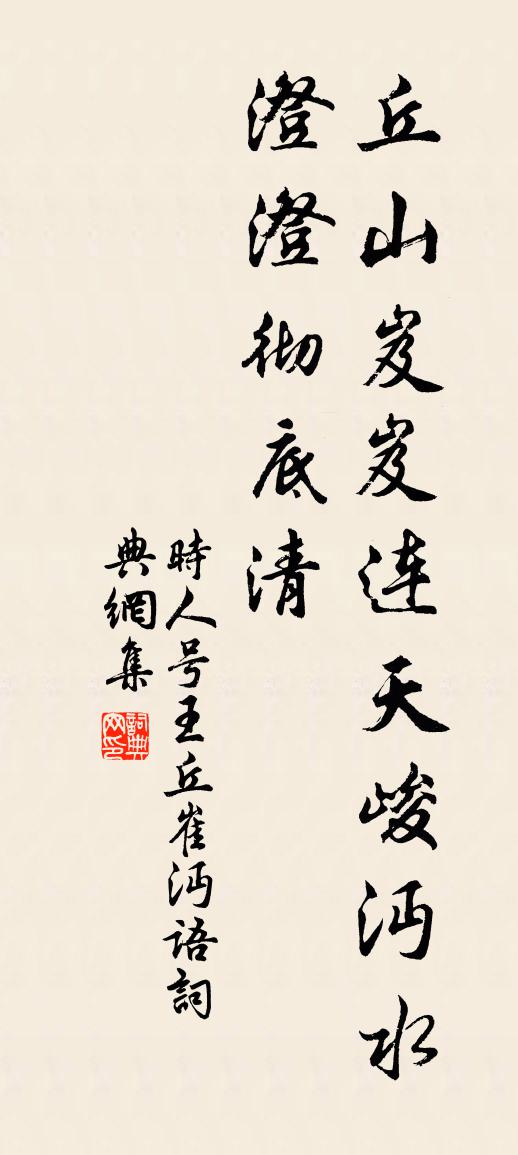 丘山岌岌连天峻沔水
澄澄彻底清
時人号王丘崔沔語詞
典網集
詞典
网印